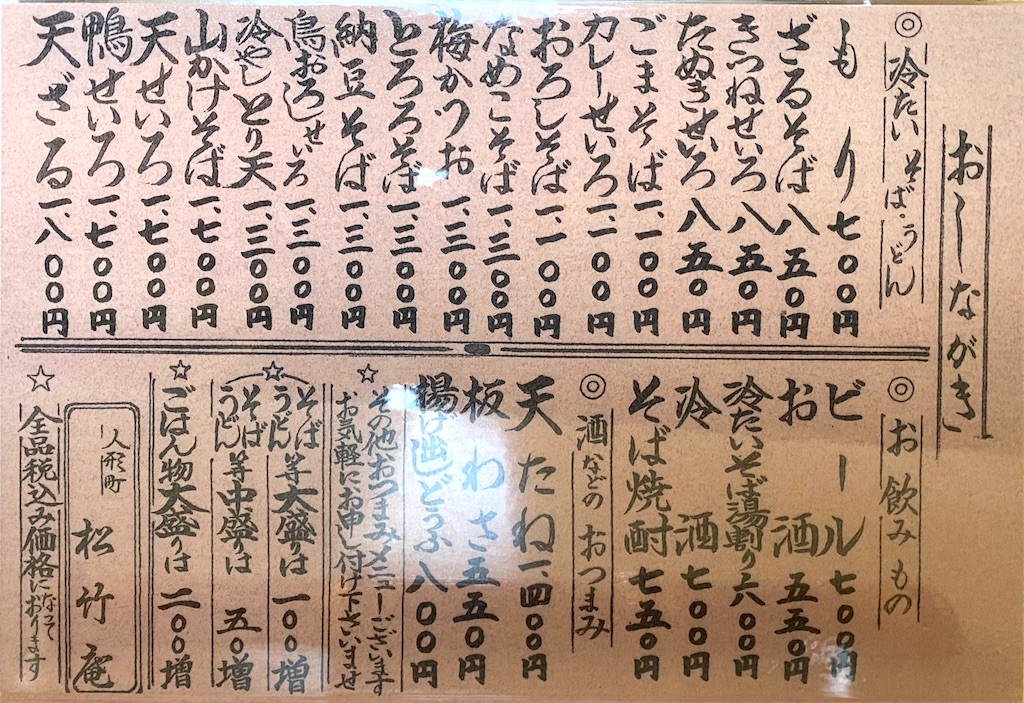 おしながき
◎冷たい そば・うどん
もり 七〇〇円
ざるそば 八五〇円
きつねせいろ 八五〇円
たぬきせいろ 八五〇円
ごまそば 一、一〇〇円
カレーせいろ 一、一〇〇円
おろしそば 一、一〇〇円
なめこそば 一、三〇〇円
梅かつお 一、三〇〇円
とろろそば 一、三〇〇円
納豆そば 一、三〇〇円
鳥おろしせいろ 一、三〇〇円
冷やしとり天 一、三〇〇円
山かけそば 一、七〇〇円
天せいろ 一、七〇〇円
鴨せいろ 一、七〇〇円
天ざる 一、八〇〇円
◎お飲みもの
ビール 七〇〇円
お酒 五五〇円
冷たいそば湯割り 六〇〇円
冷酒 七〇〇円
そば焼酎 七五〇円
◎酒などの おつまみ
天たね 一、四〇〇円
板わさ 五五〇円
揚げ出しどうふ 八〇〇円
☆その他おつまみメニューございます
お気軽にお申し付け下さいませ
☆そばうどん等大盛りは 一〇〇増
そばうどん等中盛りは 五〇増
☆ごはん物大盛りは 二〇〇増
人形町 松竹庵
☆全品税込み価格になっております